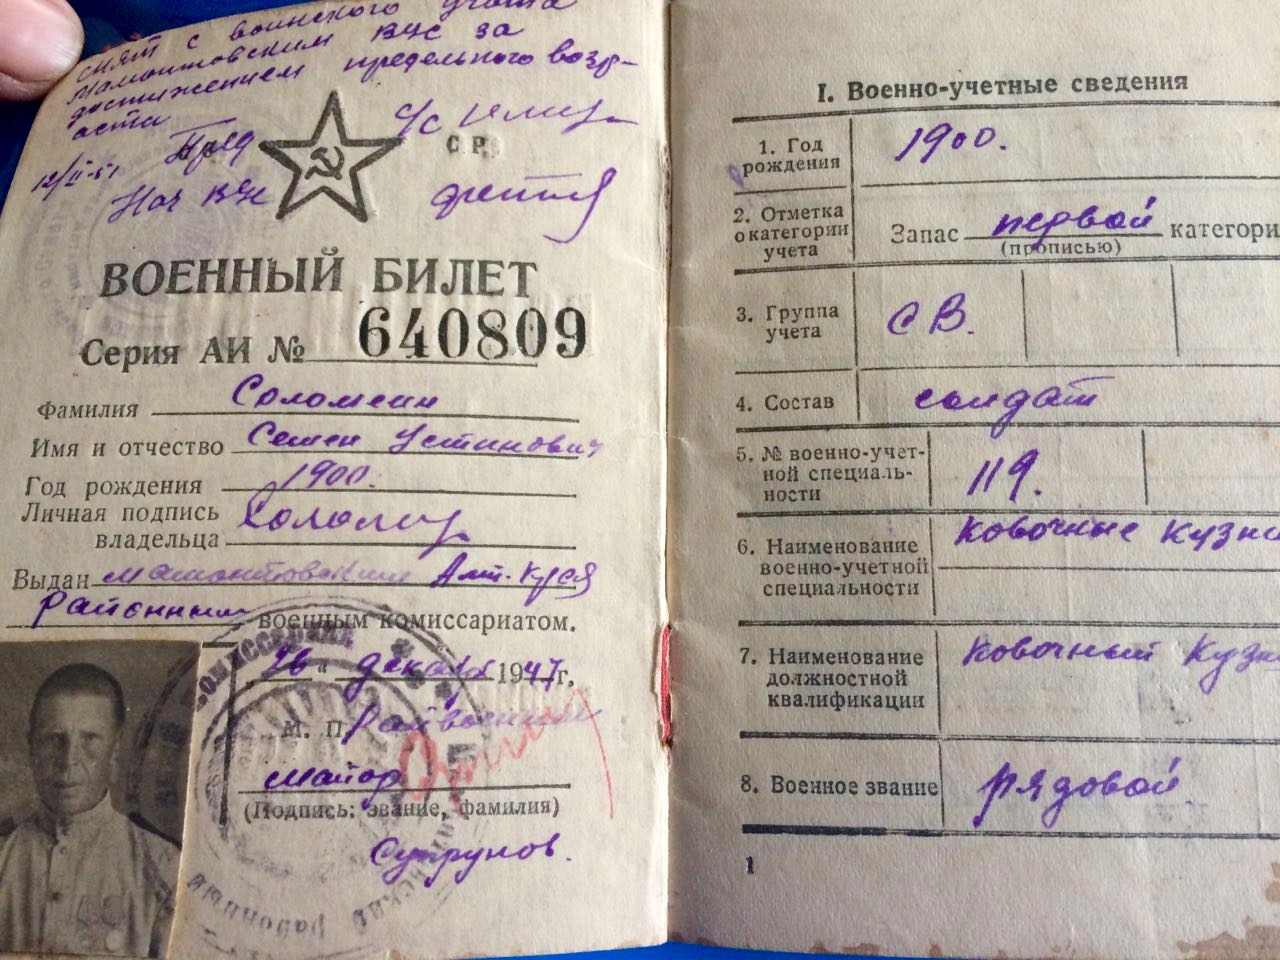 снят с воинского учета
Мамонтовским ВУС за
достижением предельного возр-
аста
12/II-51 Пред
Нач ВУС
С Р
ВОЕННЫЙ БИЛЕТ
Серия АИ № 640809
Фамилия Соломеин
Имя и отчество Семен Устинович
Год рождения 1900.
Личная подпись
владельца
Выдан Мамонтовским Алт. края
Районным военным комиссариатом.
26 " декабря 1947 г.
М. П. Райвоенком
майор
(Подпись: звание, фамилия)
Супрунов.
I. Военно-учетные сведения
1. Год
рождения 1900.
2. Отметка
о категории
учета Запас первой категори
(прописью)
3. Группа
учета СВ.
4. Состав солдат
5. № военно-учет-
ной специаль-
ности 119.
6. Наименование
военно-учетной
специальности ковочные кузн
7. Наименование
должностной
квалификации ковочный кузн
8. Военное звание рядовой
1